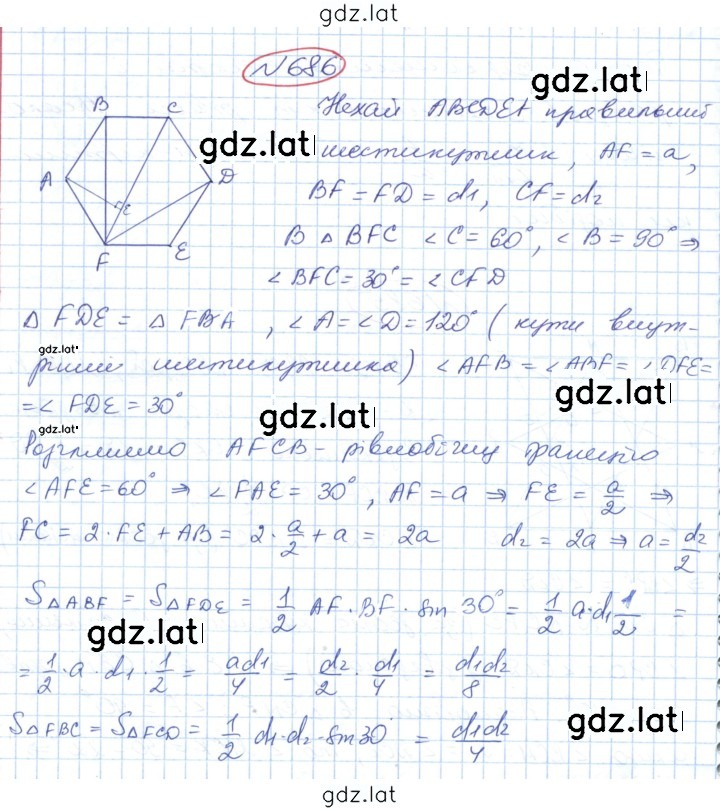 gdz.lat
№686
gdz.lat
Нехай ABCDEF правильний
gdz.lat
шестикутник, AF = a,
BF = FD = d₁, CF = d₂
В △ BFC ∠C = 60°, ∠B = 90° ⇒
∠BFC = 30° = ∠CFD
B C
A D
E
F E
△ FDE = △ FBA, ∠A = ∠D = 120° (кути внут-
gdz.lat
рішні шестикутника) ∠AFB = ∠ABF = ∠DFE =
gdz.lat
= ∠ FDE = 30°
gdz.lat
gdz.lat
Розглянемо AFCB - рівнобічну трапецію
∠AFE = 60° ⇒ ∠FAE = 30°, AF = a ⇒ FE = a/2 ⇒
FC = 2·FE + AB = 2·a/2 + a = 2a d₂ = 2a ⇒ a = d₂/2
S△ABF = S△FDE = 1/2 AF·BF·sin 30° = 1/2 a·d₁ 1/2 =
gdz.lat
= 1/2·a·d₁·1/2 = ad₁/4 = d₂/2·d₁/4 = d₁d₂/8
gdz.lat
S△FBC = S△FCD = 1/2 d₁·d₂·sin30° = d₁d₂/4
gdz.lat